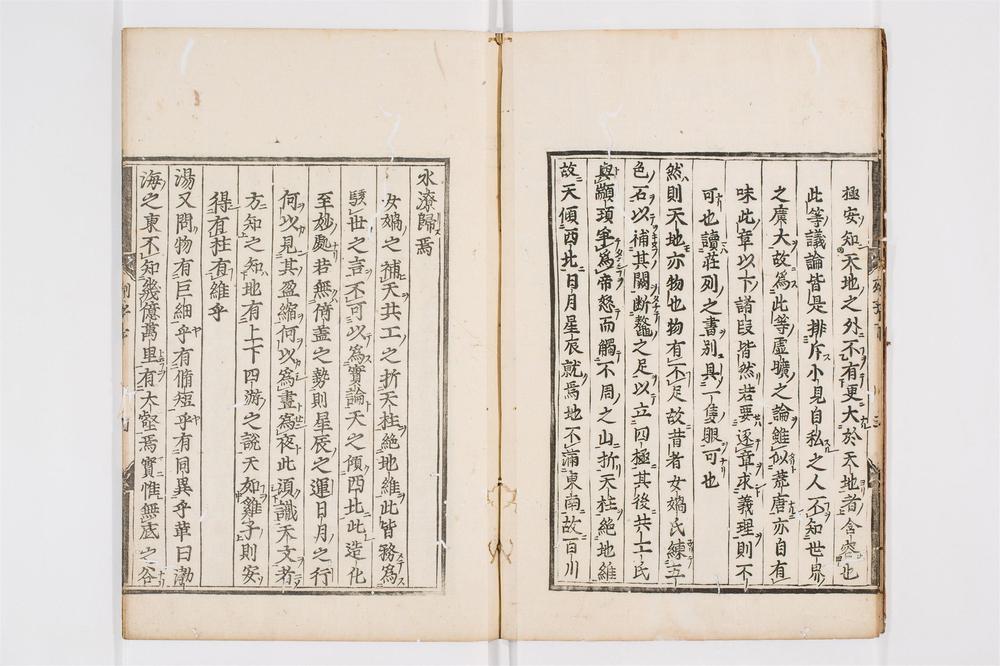 極安知天地之外不有更大於天地者含容也
此等議論皆是排斥小見自私之人不知世界
之廣大故爲此等虛曠之論雖似荒唐亦自有
味此章以下諸段皆然若要逐章求義理則不
可也讀莊列之書別具一隻眼可也
然則天地亦物也物有不足故昔者女媧氏練五
色石以補其闕断鼇之足以立四極其後共工氏
與顓頊爭爲帝怒而觸不周之山折天柱絶地維
故天傾西北日月星辰就焉地不滿東南故百川
水潦歸焉
女媧之補天共工之折天柱絶地維此皆務爲
駭世之言不可以爲實論天之傾西北此造化
至妙處若無倚盖之勢則星辰之運日月之行
何以見其盈縮何以爲晝爲夜此須識天文者
方知之知地有上下四游之說天如雞子則安
得有柱有維乎
湯又問物有巨細乎有脩短乎有同異乎革曰渤
海之東不知幾億萬里有大壑焉實惟無底之谷